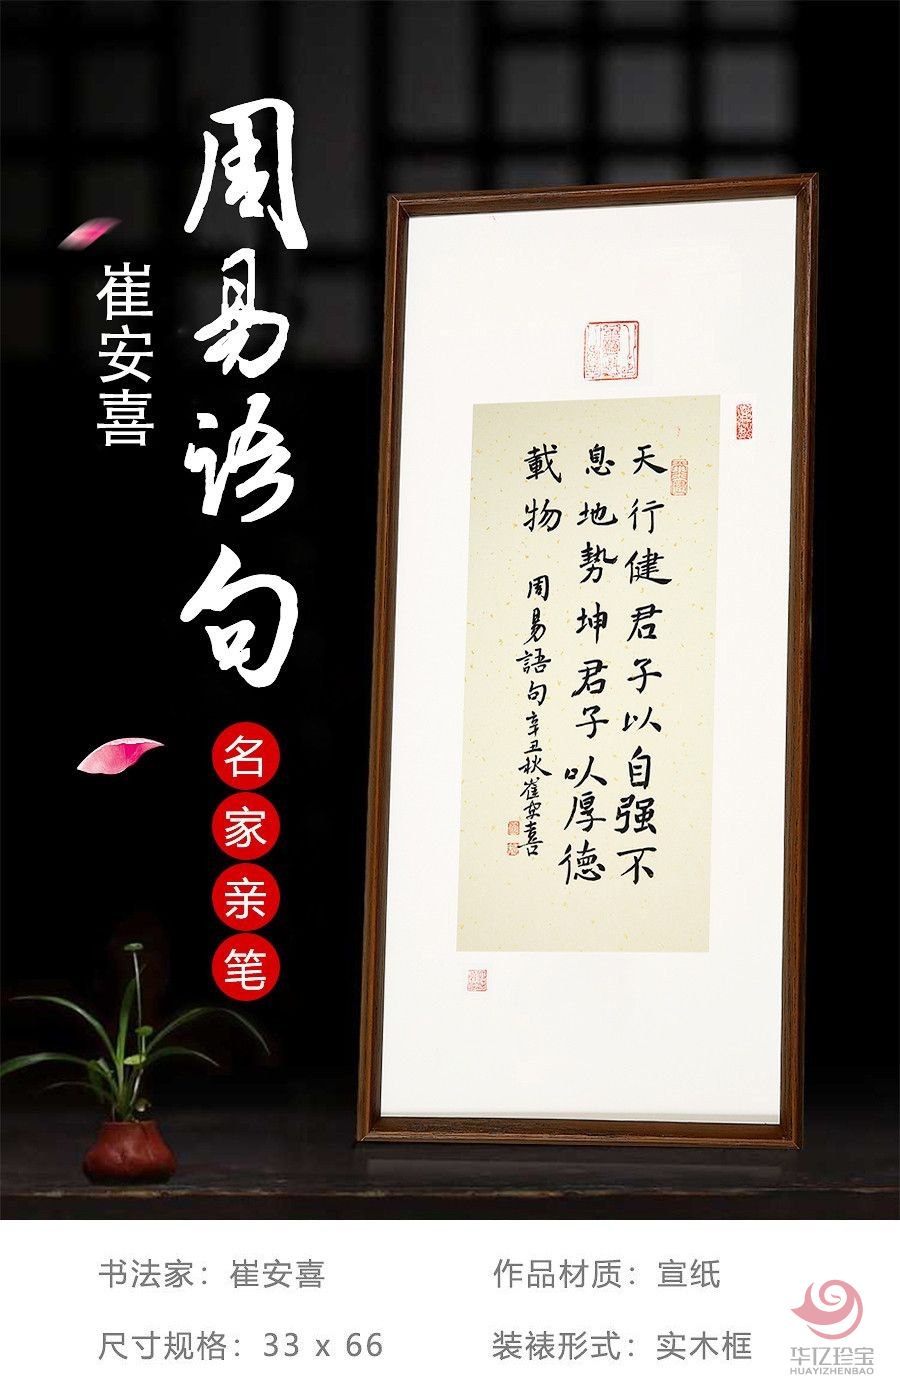 周易语句
崔安喜
名家亲笔
天行健君子以自强不
息地勢坤君子以厚德
載物
周易語句辛丑秋崔安喜
书法家：崔安喜
作品材质：宣纸
尺寸规格：33 x 66
装裱形式：实木框
华亿珍宝
HUAYIZHENBAO